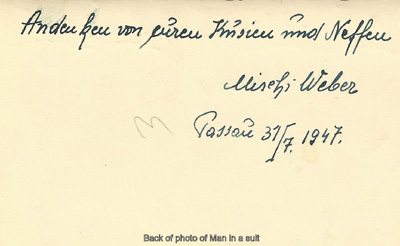 Andenken von euren Kusien und Neffen
Mischi Weber
3
Passau 31/7. 1947.
Back of photo of Man in a suit